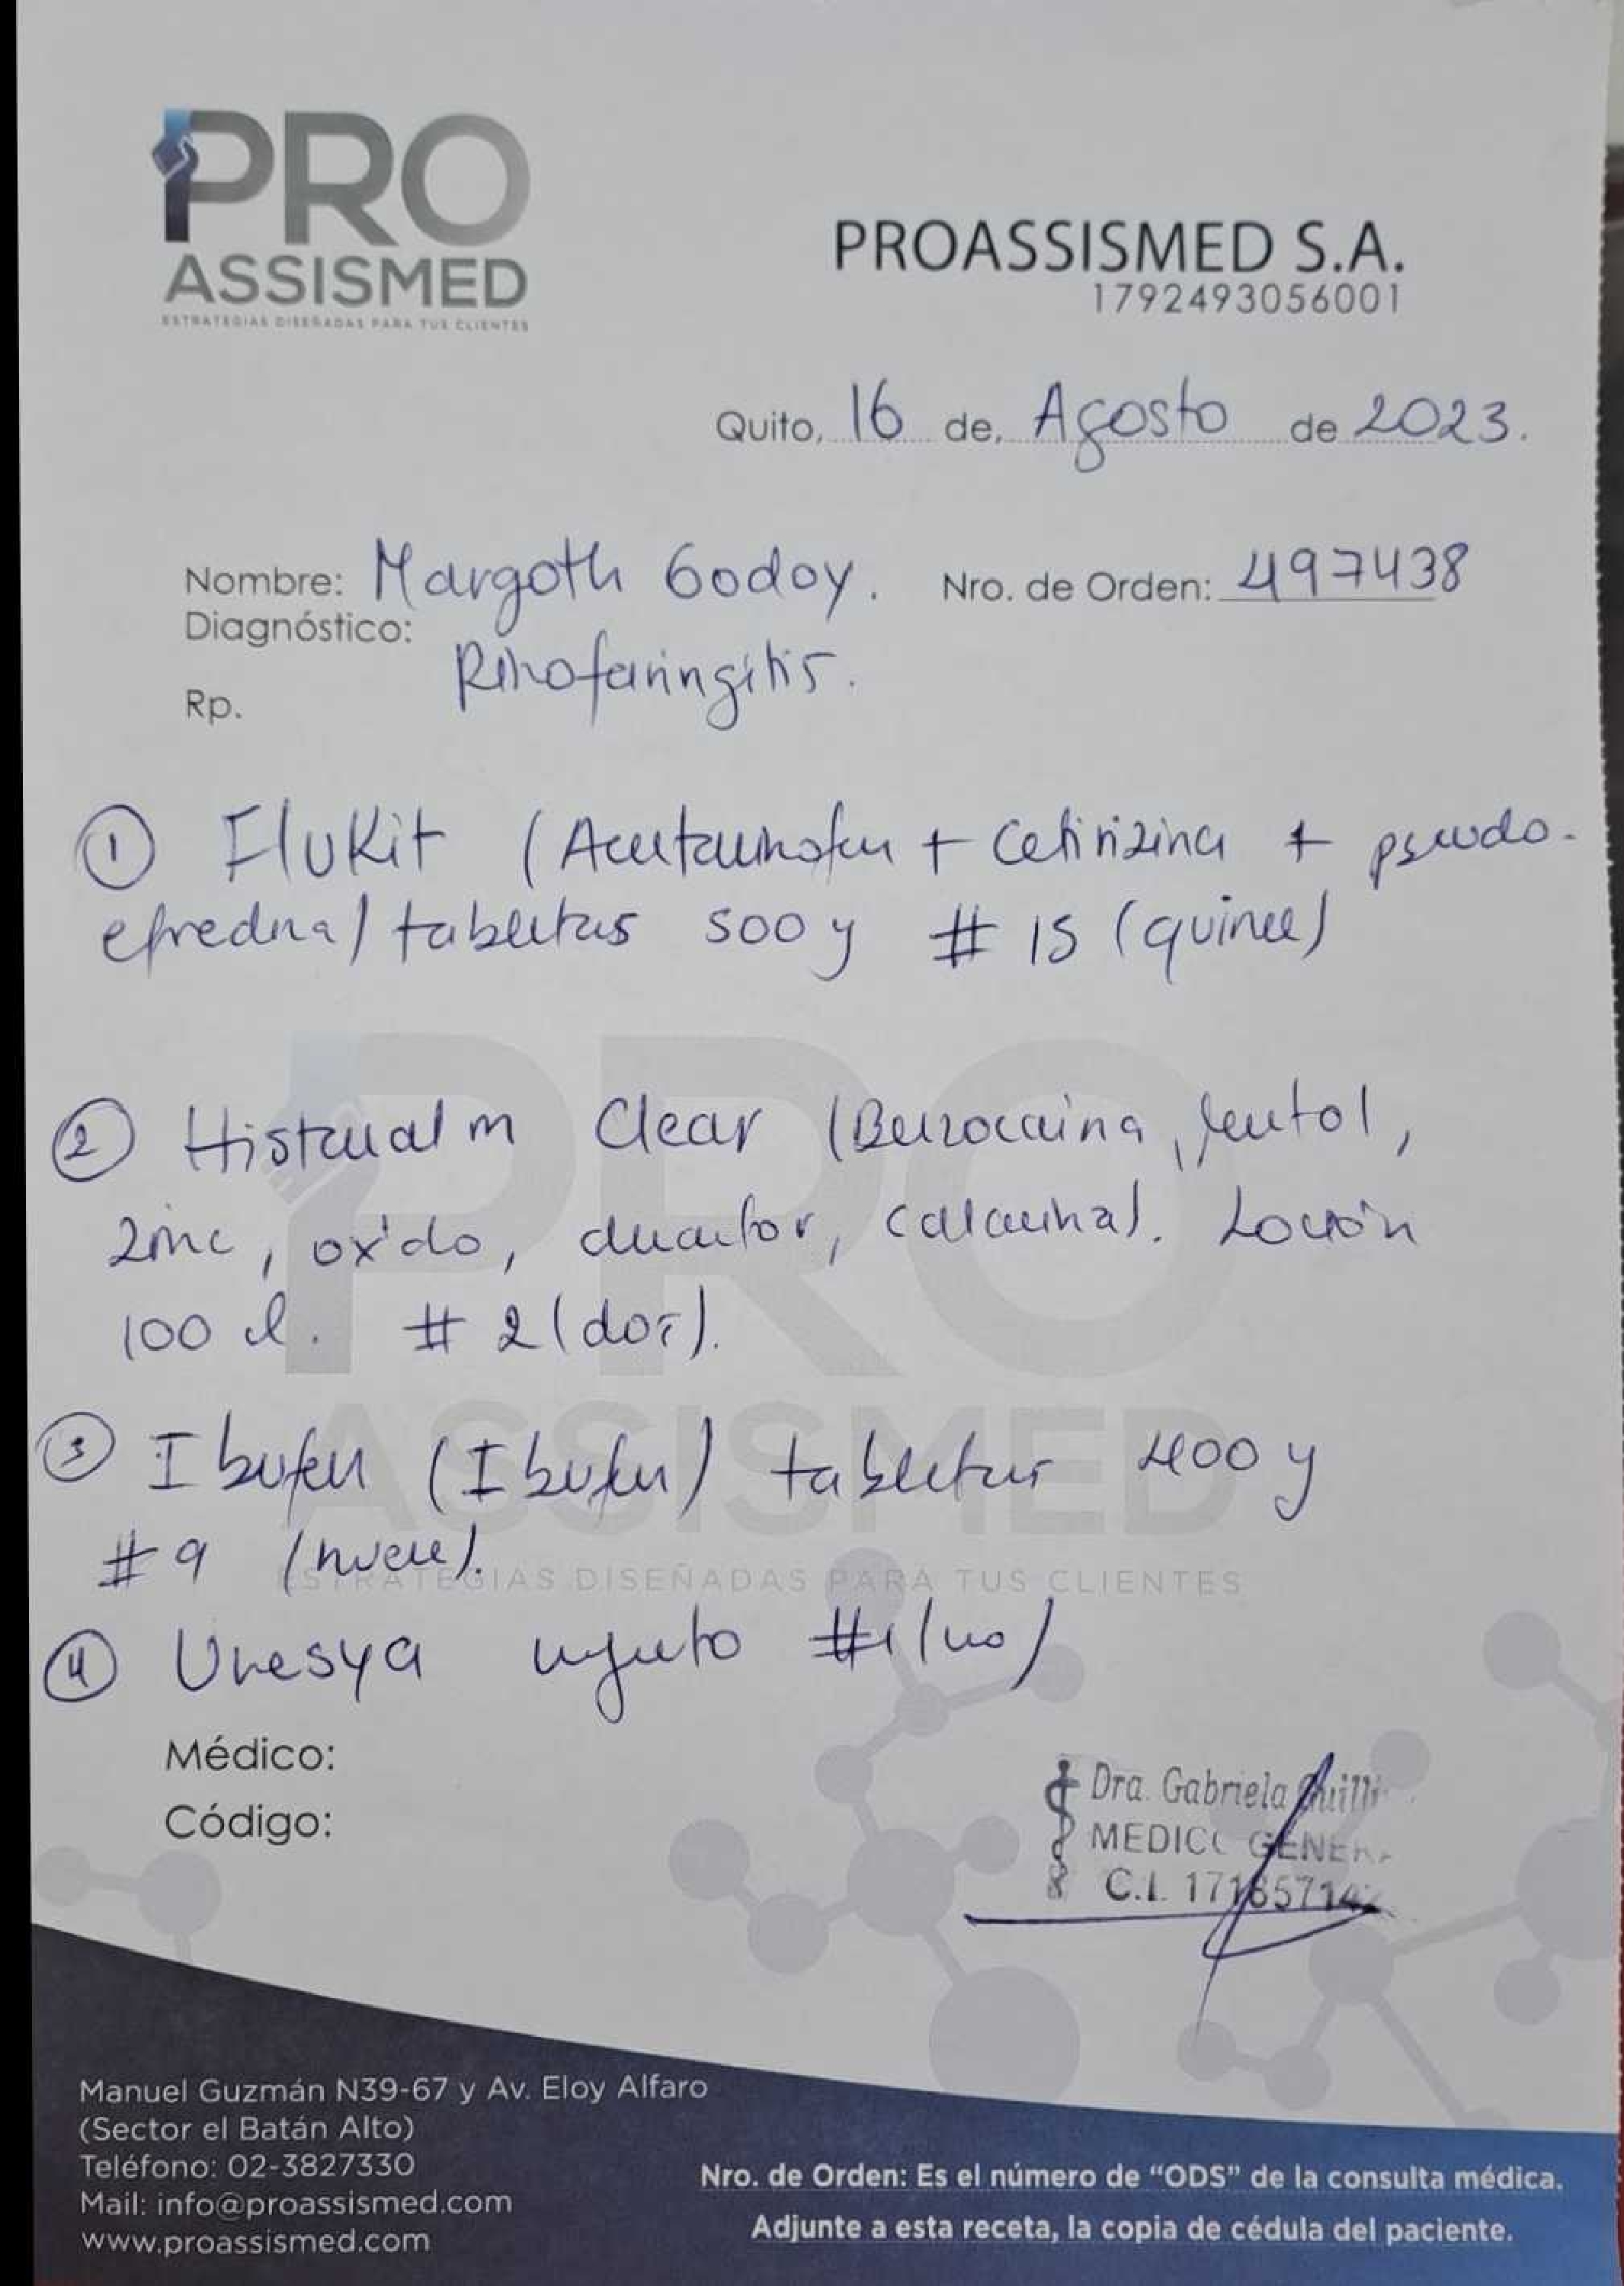 PRO
ASSISMED
ESTRATEGIAS DISEÑADAS PARA TUS CLIENTES
PROASSISMED S.A.
1792493056001
Quito, 16 de, Agosto de 2023.
Nombre: Margoth Godoy. Nro. de Orden: 497438
Diagnóstico:
Rinofaringitis.
Rp.
① FluKit (Acetaminofen + Cetirizina + pseudo-
efredina) tabletas 500 # 15 (quince)
② Clear (Benzocaina, Mentol,
Zinc, oxido, calamina). Loción
100 # 2 (dos).
③ Ibufen (Ibufen) tabletas 400
# 9 (nueve).
PRO
ASSISMED
ESTRATEGIAS DISEÑADAS PARA TUS CLIENTES
④ #1
Médico:
Código:
Dra. Gabriela
MEDICO
C.I.
Manuel Guzmán N39-67 y Av. Eloy Alfaro
(Sector el Batán Alto)
Teléfono: 02-3827330
Mail: info@proassismed.com
www.proassismed.com
Nro. de Orden: Es el número de “ODS” de la consulta médica.
Adjunte a esta receta, la copia de cédula del paciente.